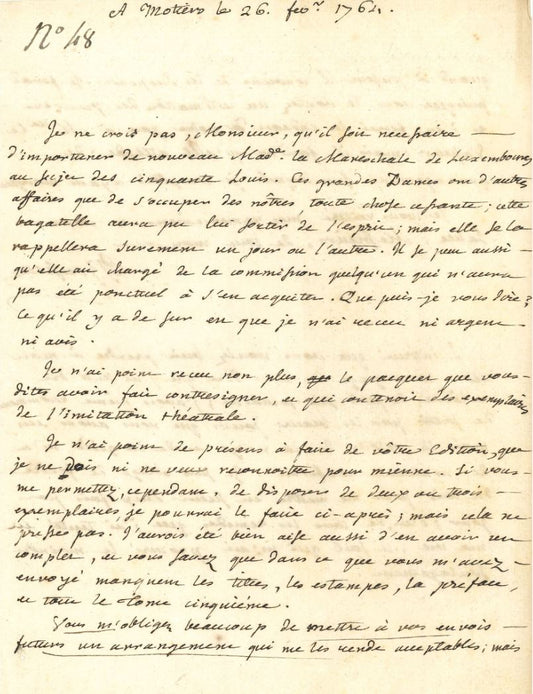 A Motiers le 26. fevr. 1764.
No 48
Je ne crois pas, Monsieur, qu'il soit necessaire
d'importuner de nouveau Made. la Mareschale de Luxembourg
au sujet des cinquante Louis. Ces grandes Dames ont d'autres
affaires que de s'occuper des nôtres, toute chose cessante; cette
bagatelle aura pu lui sortir de l'esprit; mais elle se la
rappellera surement un jour ou l'autre. Il se peut aussi
qu'elle ait chargé de la commission quelqu'un qui n'aura
pas été ponctuel à s'en acquiter. Que puis-je vous dire?
Ce qu'il y a de sur est que je n'ai receu ni argent
ni avis.
Je n'ai point receu non plus, le pacquet que vous
dites avoir fait contresigner, et qui contenoit des exemplaires
de l'imitation théatrale.
Je n'ai point de présens à faire de vôtre Edition, que
je ne dois ni ne veux reconnoitre pour mienne. Si vous
me permettez, cependant, de disposer de deux ou trois
exemplaires, je pourrai le faire ci-après; mais cela ne
presse pas. J'aurois été bien aise aussi d'en avoir un
complet, et vous savez que dans ce que vous m'avez
envoyé manquent les titres, les estampes, la préface,
et tout le Tome cinquiéme.
Vous m'obligez beaucoup de mettre à vos envois
futurs un arrangement qui me les rende acceptables; mais